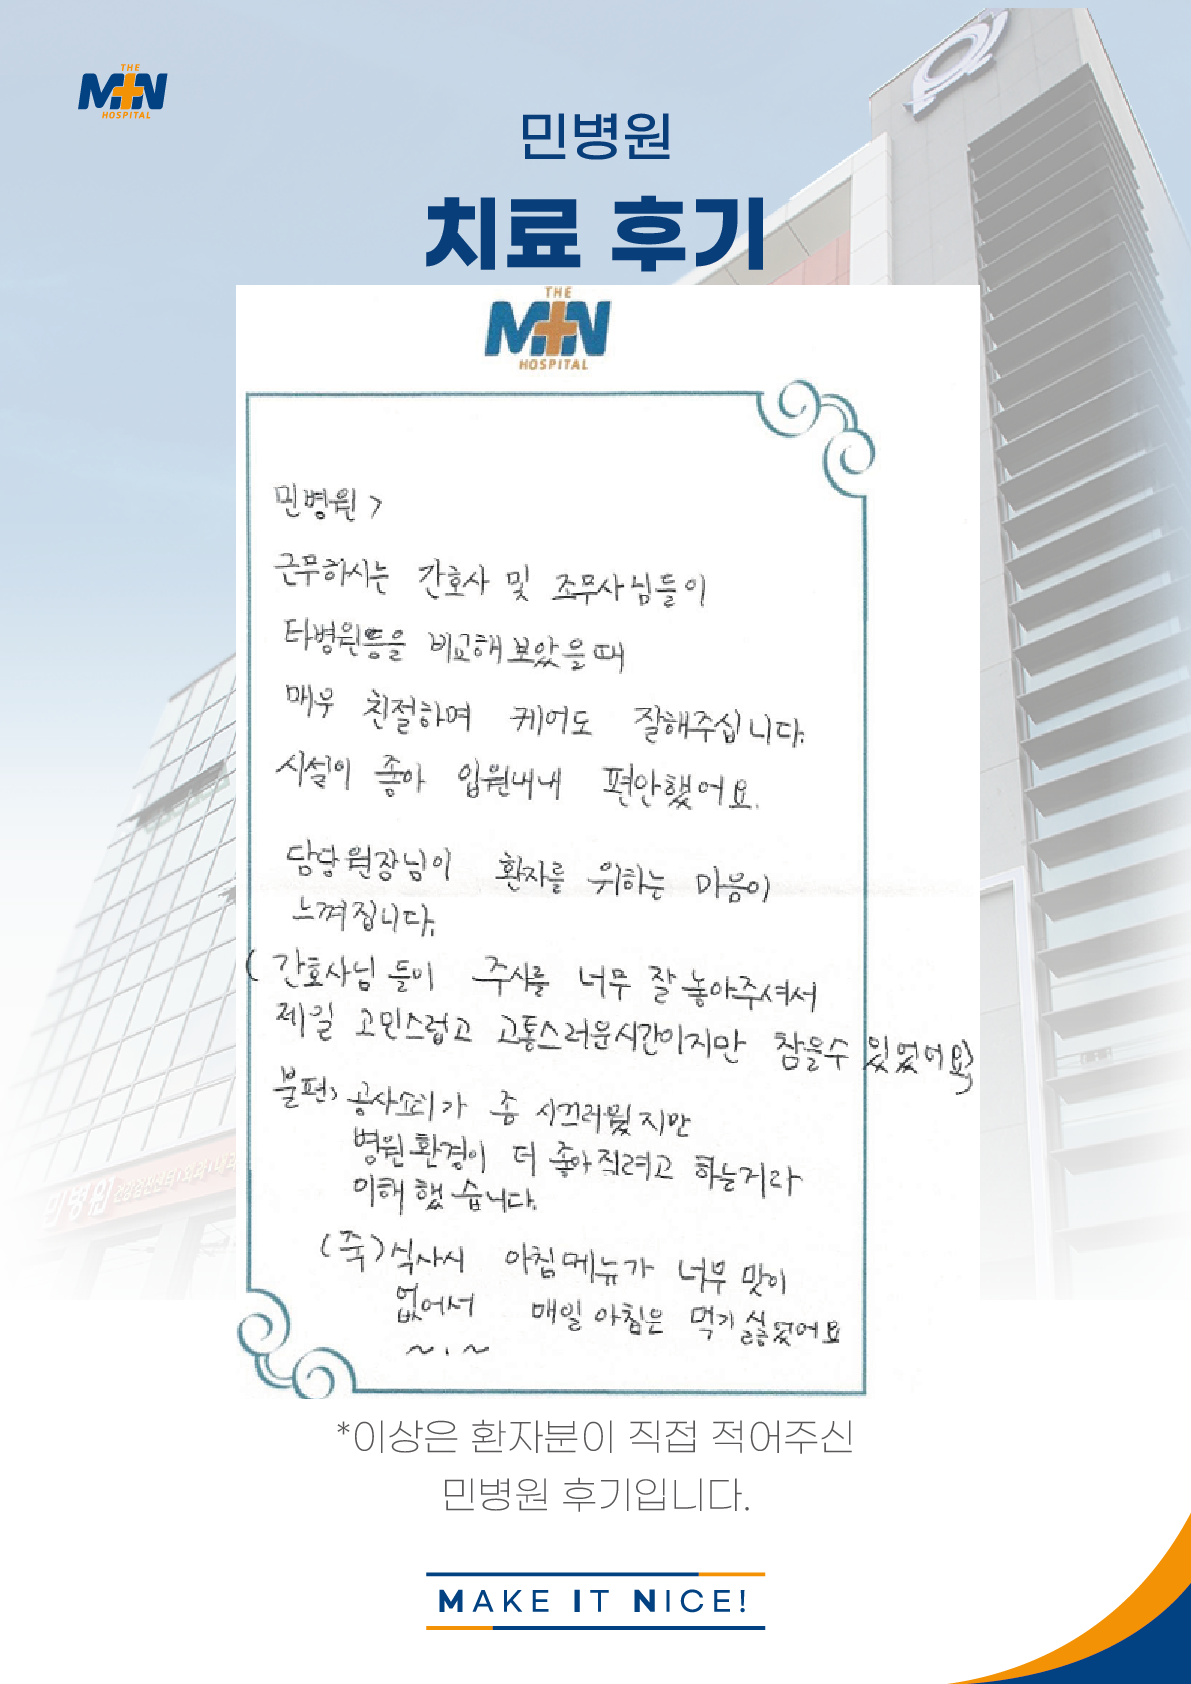 THE
MIN
HOSPITAL
민병원
치료 후기
THE
MIN
HOSPITAL
민병원 >
근무하시는 간호사 및 조무사님들이
타병원등을 비교해보았을때
매우 친절하며 케어도 잘해주십니다.
시설이 좋아 입원내내 편안했어요.
담당원장님이 환자를 위하는 마음이
느껴집니다.
(간호사님들이 주사를 너무 잘 놓아주셔서
제일 고민스럽고 고통스러운시간이지만 참을수 있었어요)
불편> 공사소리가 좀 시끄러웠지만
병원환경이 더 좋아지려고 하는거라
이해했습니다.
(죽)식사시 아침메뉴가 너무 맛이
없어서 매일 아침은 먹기싫었어요
~.~
민병원 건강검진센터
*이상은 환자분이 직접 적어주신
민병원 후기입니다.
MAKE IT NICE!